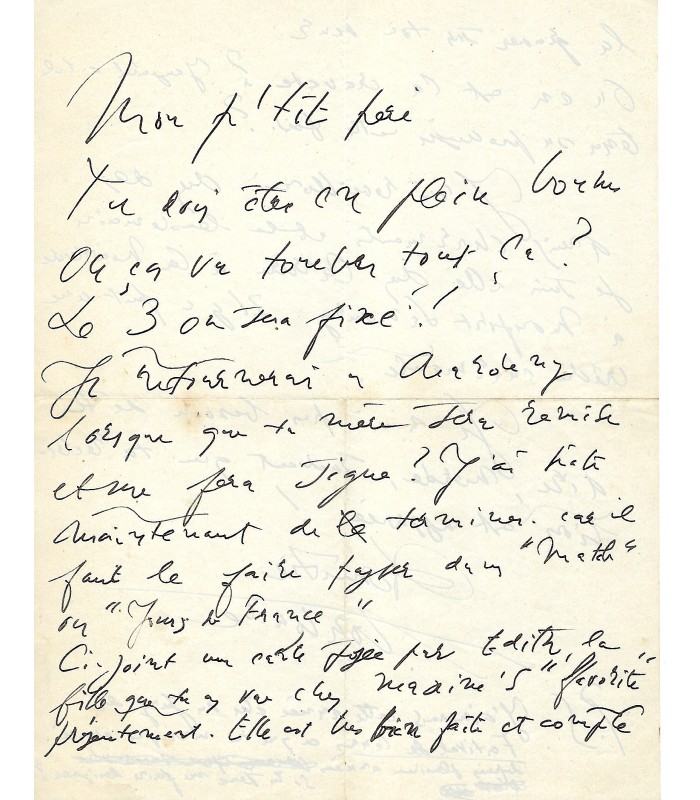 Mon p'tit père
Tu dois être en plein boum
Où ça va tomber tout ça ?
Le 3 on sera fixé !!
Je retournerai à
lorsque que ta mère sera remise
et me fera signe ? J'ai hâte
maintenant de le terminer. car il
faut le faire passer dans "Match"
ou "Jours de France"
Ci-joint une carte par Edith, la
fille que tu as vue chez maxime's "favorite"
présentement. Elle est très bien faite et compte